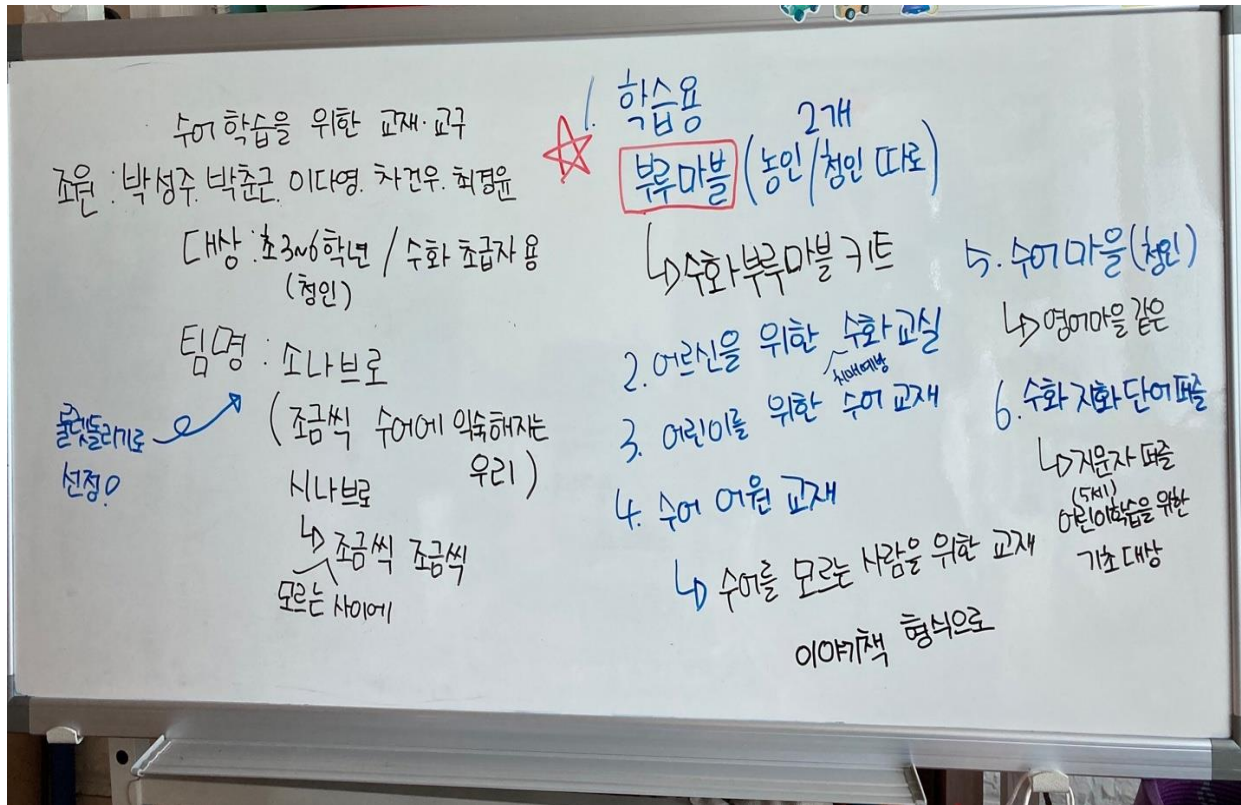 수어 학습을 위한 교재·교구
조원 : 박성주. 박춘근. 이다영. 차건우. 최경윤
대상 : 초3~6학년 / 수화 초급자 용
(청인)
팀명 : 소나브로
(조금씩 수어에 익숙해지는
우리)
룰렛돌리기로
선정O
시나브로
↳ 조금씩 조금씩
모르는 사이에
1. 학습용
2개
부루마블 (농인/청인 따로)
↳ 수화부루마블 키트
2. 어르신을 위한 수화교실
치매예방
3. 어린이를 위한 수어 교재
4. 수어 어원 교재
↳ 수어를 모르는 사람을 위한 교재
이야기책 형식으로
5. 수어마을(청인)
↳ 영어마을 같은
6. 수화 지화 단어퍼즐
↳ 지문자 퍼즐
(5세)
어린이학습을 위한
기초 대상